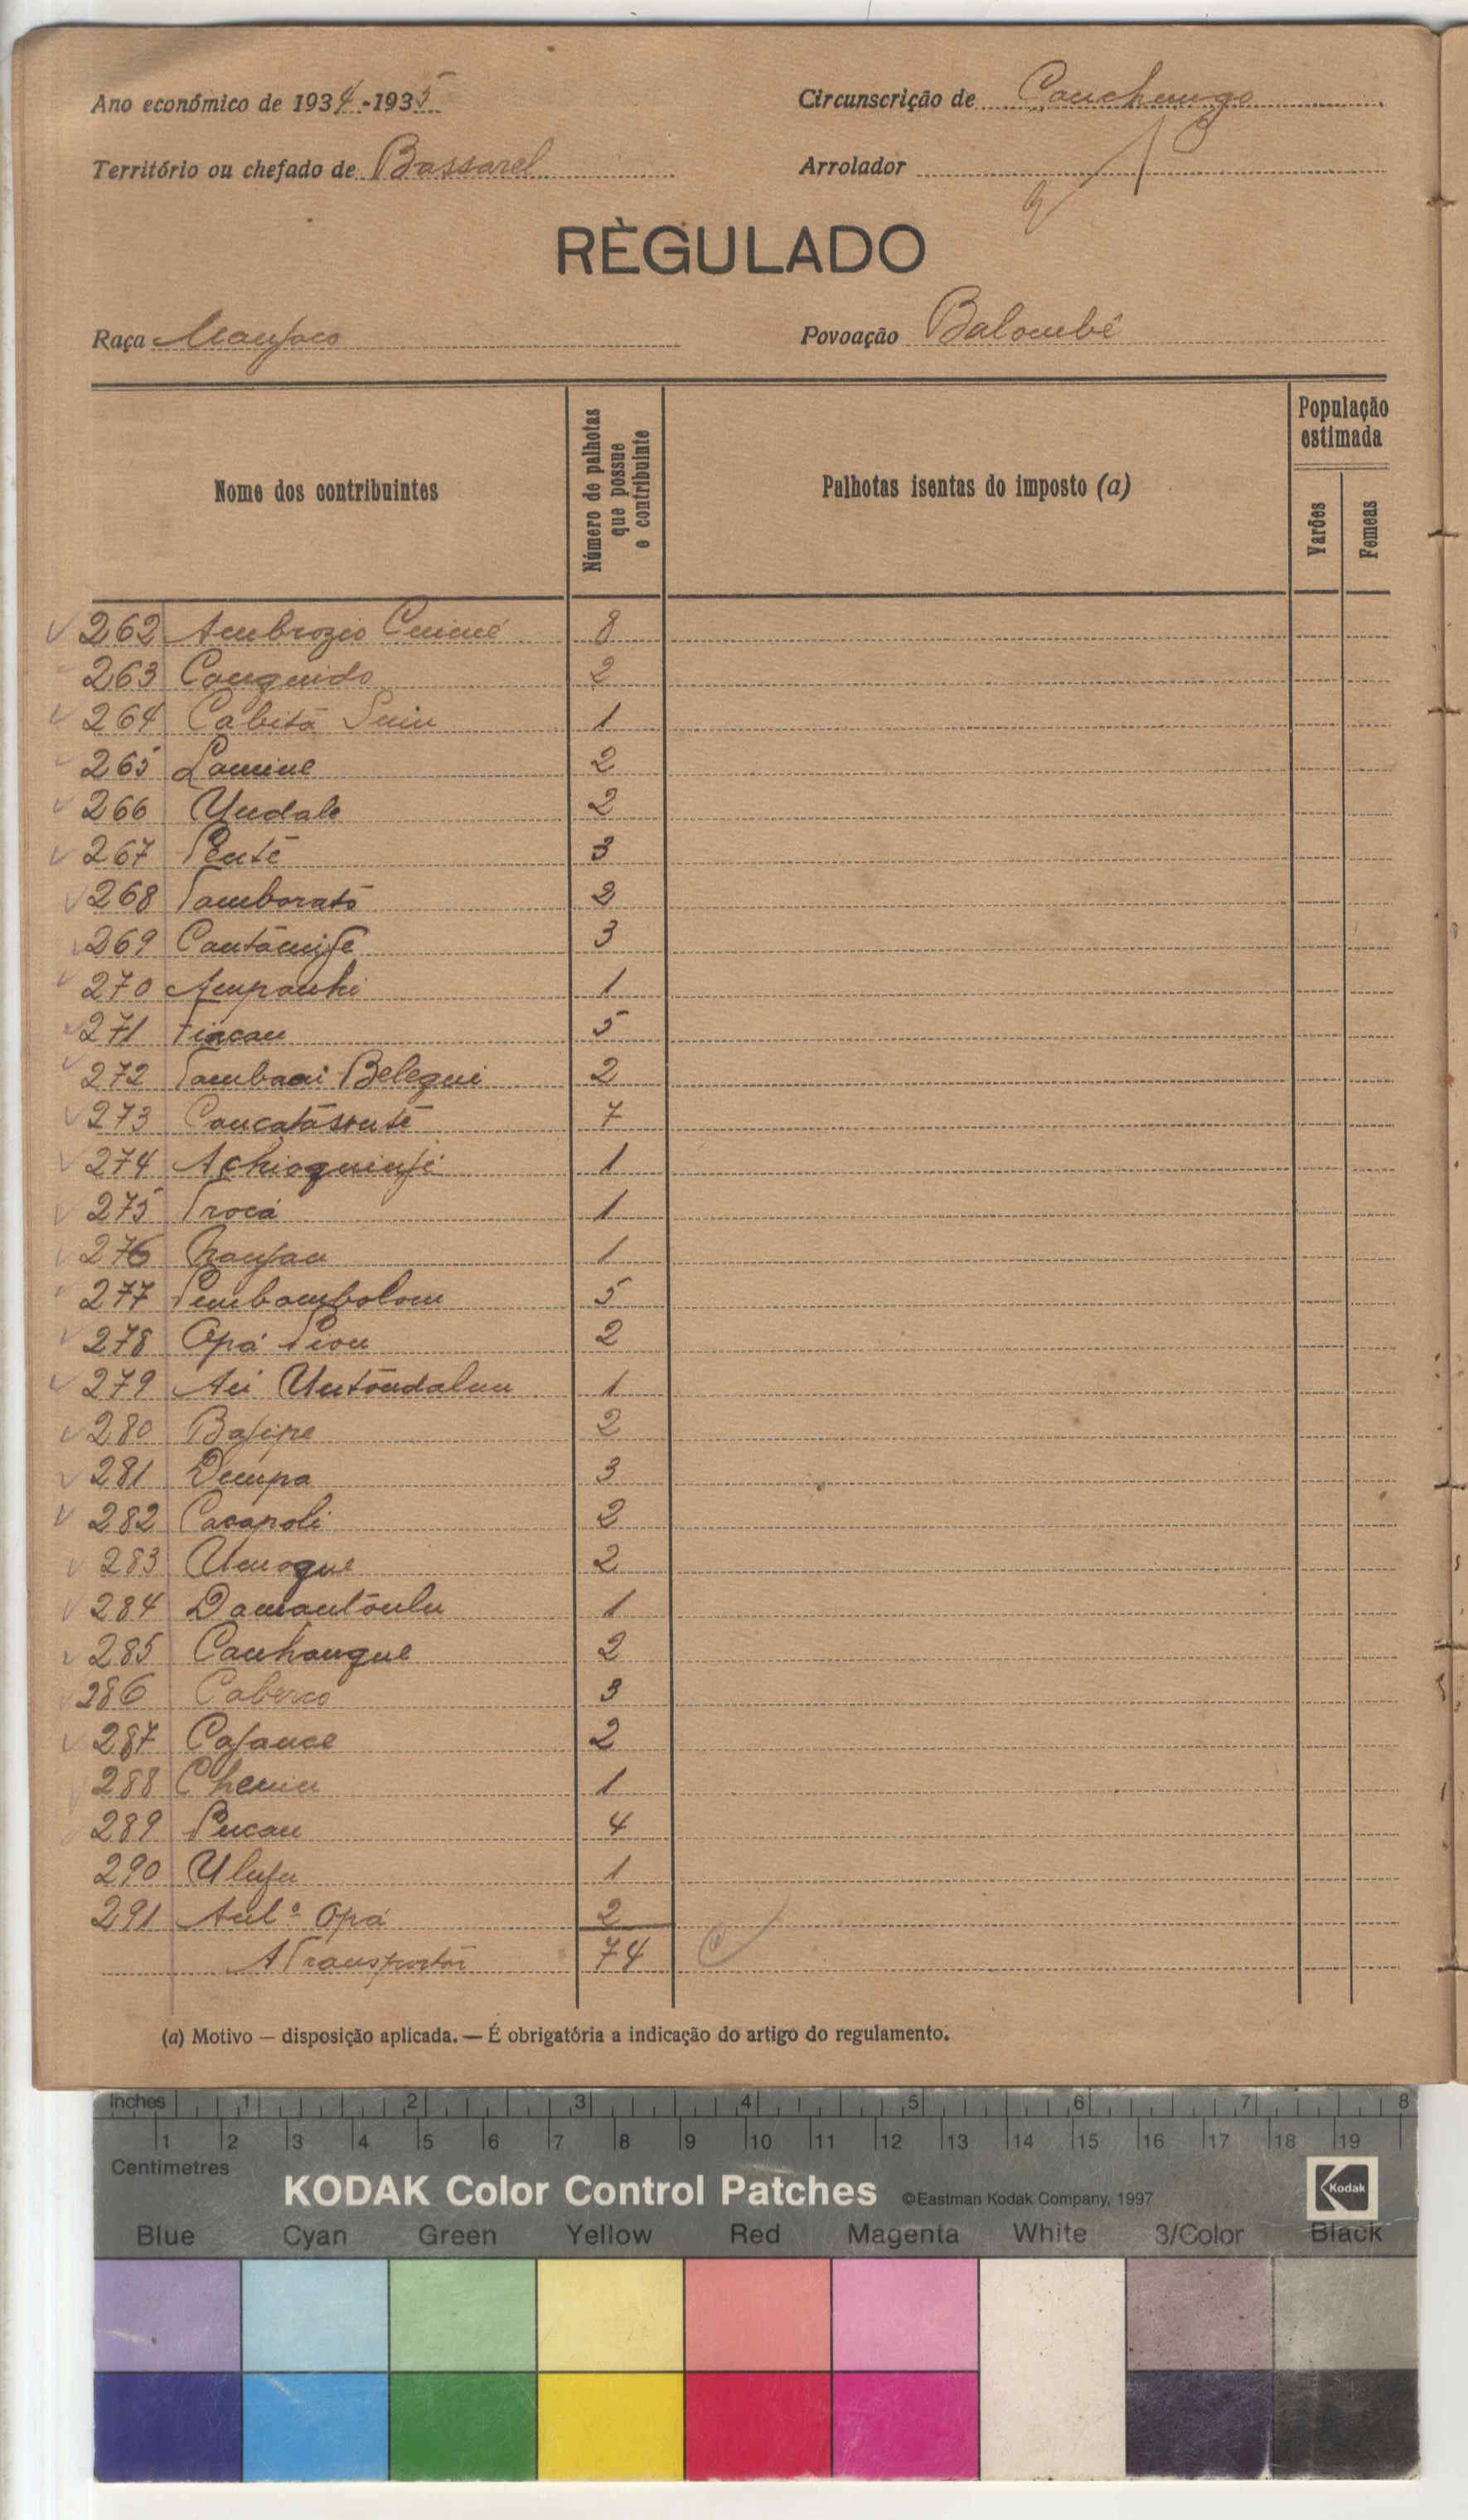 Ano económico de 1934-1935
Circunscrição de Canchungo
Território ou chefado de Bassarel
Arrolador
RÈGULADO
Raça Manjaco
Povoação Balombê
Nome dos contribuintes
Número de palhotas que possue o contribuinte
Palhotas isentas do imposto (a)
População estimada
Varões
Femeas
262 Ambrozio 8
263 Canguido 2
264 Cabitã 1
265 Lamine 2
266 Undale 2
267 Pentê 3
268 Tamboratô 2
269 3
270 Ampanhi 1
271 Fincan 5
272 Belegui 2
273 7
274 1
275 Trocá 1
276 1
277 Pembambolom 5
278 Opá 2
279 1
280 Bajipe 2
281 Dempa 3
282 Cacapoli 2
283 Umoque 2
284 1
285 Canhangue 2
286 3
287 Cajance 2
288 1
289 Pucan 4
290 Ulufu 1
291 Antº Opá 2
A Transportar 74
(a) Motivo — disposição aplicada. — É obrigatória a indicação do artigo do regulamento.
Inches 1 2 3 4 5 6 7 8
1 2 3 4 5 6 7 8 9 10 11 12 13 14 15 16 17 18 19
Centimetres
KODAK Color Control Patches ©Eastman Kodak Company, 1997 Kodak
Blue Cyan Green Yellow Red Magenta White 3/Color Black